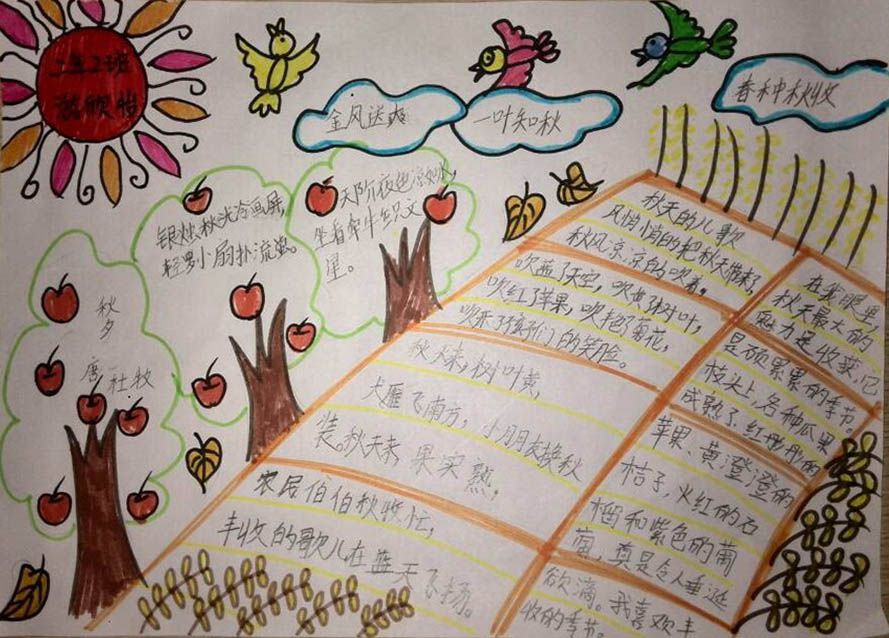 二年2班
欣怡
金风送爽
一叶知秋
春种秋收
秋夕
唐 杜牧
银烛秋光冷画屏,
轻罗小扇扑流萤。
天阶夜色凉如水,
坐看牵牛织女
星。
秋天的儿歌
风悄悄的把秋天带来了
秋风凉凉的吹着。
吹蓝了天空,吹黄了树叶,
吹红了苹果,吹艳了菊花,
吹乐了孩子们的笑脸。
秋天来,树叶黄,
大雁飞南方,小朋友换秋
装。秋天来,果实熟,
农民伯伯秋收忙,
丰收的歌儿在蓝天飞扬。
在我眼里,
秋天最大的
魅力是收获,它
是硕果累累的季节。
枝头上,各种瓜果
成熟了,红彤彤的
苹果、黄澄澄的
桔子,火红的石
榴和紫色的葡
萄,真是令人垂涎
欲滴。我喜欢丰
收的季节。